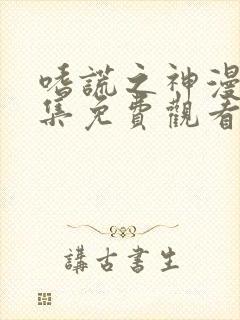 嗜謊之神漫
集免費觀看
講古書生